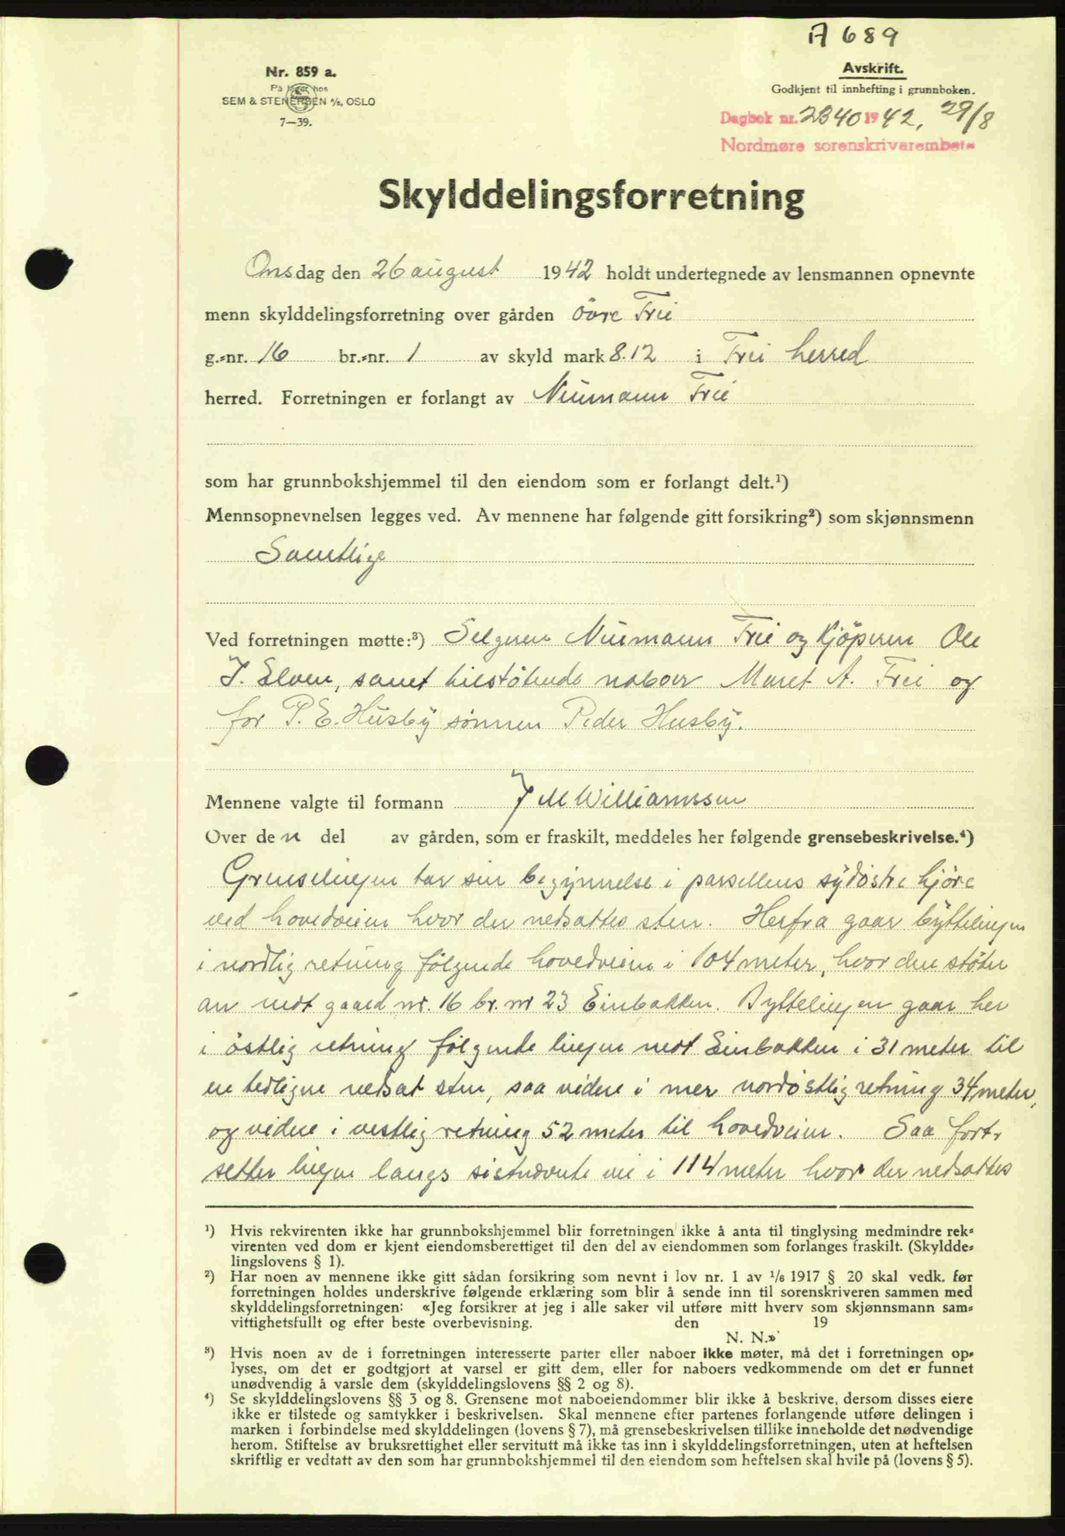 A 689
Nr. 859 a.
På lager hos
SEM & STENERSEN A/S, OSLO
7—39.
Avskrift.
Godkjent til innhefting i grunnboken.
Dagbok nr. 2340 1942, 29/8
Nordmøre sorenskrivarembete
Skylddelingsforretning
Onsdag den 26 august 1942 holdt undertegnede av lensmannen opnevnte
menn skylddelingsforretning over gården Övre Frei
g.-nr. 16 br.-nr. 1 av skyld mark 8.12 i Frei herred
herred. Forretningen er forlangt av Neumann Frei
som har grunnbokshjemmel til den eiendom som er forlangt delt.¹)
Mennsopnevnelsen legges ved. Av mennene har følgende gitt forsikring²) som skjønnsmenn
Samtlige
Ved forretningen møtte:³) Selgeren Neumann Frei og kjöperen Ole
J. Elven, samt tilstötende naboer Maret A. Frei og
for P. E. Husby sönnen Peder Husby.
Mennene valgte til formann J M Williamsen
Over den del av gården, som er fraskilt, meddeles her følgende grensebeskrivelse.⁴)
Grenselinjen tar sin begynnelse i parsellens sydöstre hjöre
ved hovedveien hvor der nedsattes sten. Herfra gaar byttelinjen
i nordlig retning fölgende hovedveien i 104 meter, hvor den stöter
an mot gaard nr. 16 br. nr 23 Einbakken. Byttelinjen gaar her
i östlig retning fölgende linjen mot Einbakken i 31 meter til
en tidligere nedsat sten, saa videre i mer nordöstlig retning 34 meter,
og videre i vestlig retning 52 meter til hovedveien. Saa fort-
setter linjen langs sistnævnte vei i 114 meter hvor der nedsattes
¹) Hvis rekvirenten ikke har grunnbokshjemmel blir forretningen ikke å anta til tinglysing medmindre rek-
virenten ved dom er kjent eiendomsberettiget til den del av eiendommen som forlanges fraskilt. (Skyldde-
lingslovens § 1).
²) Har noen av mennene ikke gitt sådan forsikring som nevnt i lov nr. 1 av 1/6 1917 § 20 skal vedk. før
forretningen holdes underskrive følgende erklæring som blir å sende inn til sorenskriveren sammen med
skylddelingsforretningen: «Jeg forsikrer at jeg i alle saker vil utføre mitt hverv som skjønnsmann sam-
vittighetsfullt og efter beste overbevisning. den 19
N. N.»
³) Hvis noen av de i forretningen interesserte parter eller naboer ikke møter, må det i forretningen op-
lyses, om det er godtgjort at varsel er gitt dem, eller for naboers vedkommende om det er funnet
unødvendig å varsle dem (skylddelingslovens §§ 2 og 8).
⁴) Se skylddelingslovens §§ 3 og 8. Grensene mot naboeiendommer blir ikke å beskrive, dersom disses eiere
ikke er tilstede og samtykker i beskrivelsen. Skal mennene efter partenes forlangende utføre delingen i
marken i forbindelse med skylddelingen (lovens § 7), må grensebeskrivelsen tillike inneholde det nødvendige
herom. Stiftelse av bruksrettighet eller servitutt må ikke tas inn i skylddelingsforretningen, uten at heftelsen
skriftlig er vedtatt av den som har grunnbokshjemmel til den eiendom som heftelsen skal hvile på (lovens § 5).